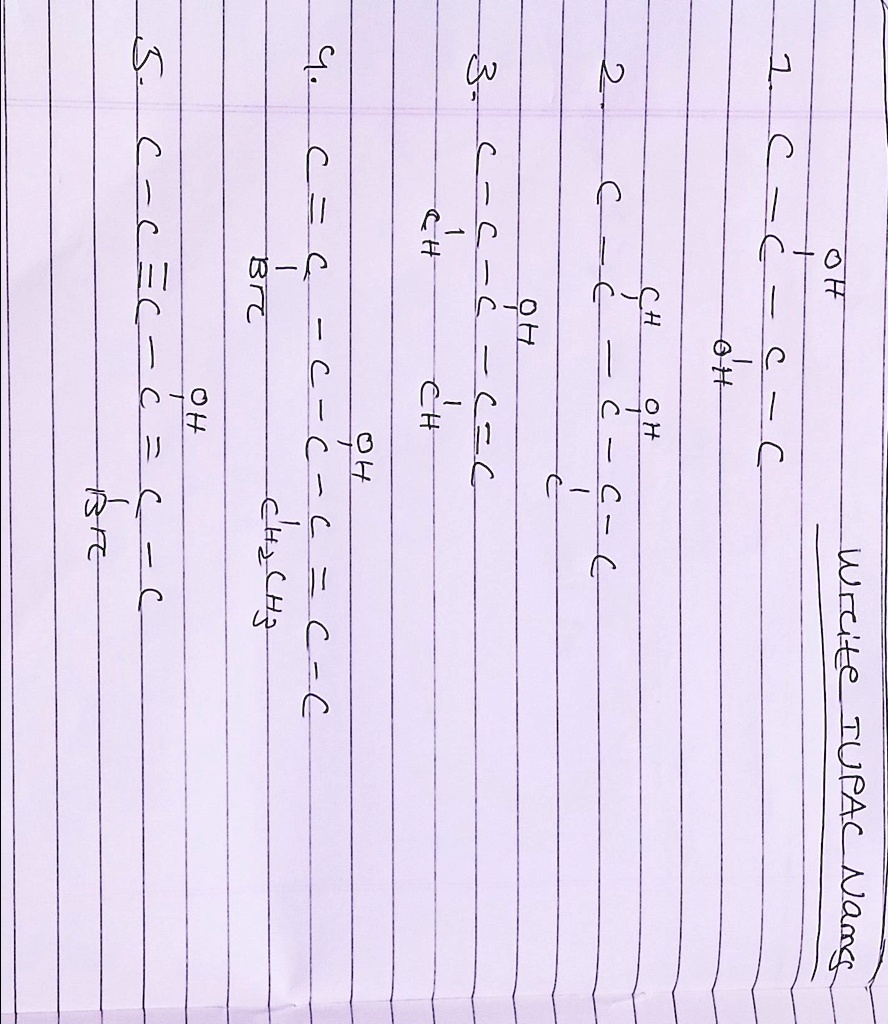 Write IUPAC Names
OH
1. C - C - C - C
OH
CH OH
2. C - C - C - C - C
C
OH
3. C - C - C - C = C
CH CH
OH
4. C = C - C - C - C = C - C
Br CH2CH3
OH
5. C - C ≡ C - C = C - C
Br